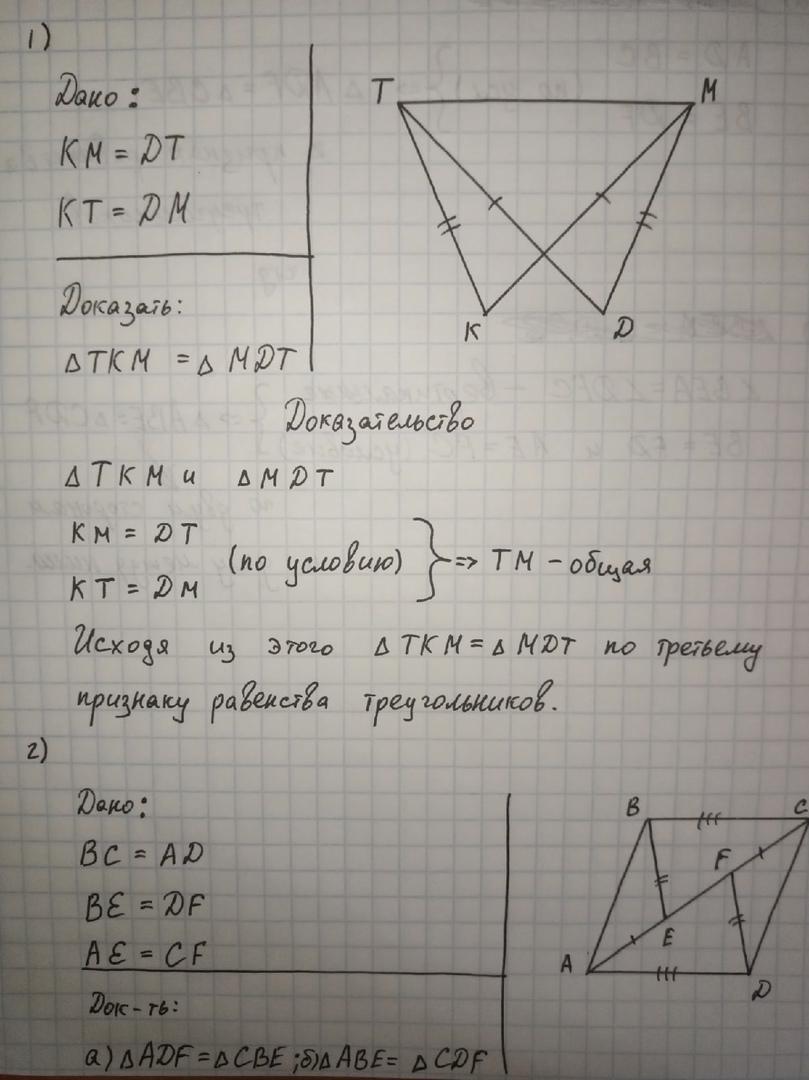 1)
Дано:
KM = DT
KT = DM
Доказать:
△TKM = △MDT
T
M
K
D
Доказательство
△TKM и △MDT
KM = DT
(по условию) } => TM - общая
KT = DM
Исходя из этого △TKM = △MDT по третьему
признаку равенства треугольников.
2)
Дано:
BC = AD
BE = DF
AE = CF
Док-ть:
а) △ADF = △CBE; б) △ABE = △CDF
B
C
F
E
A
D